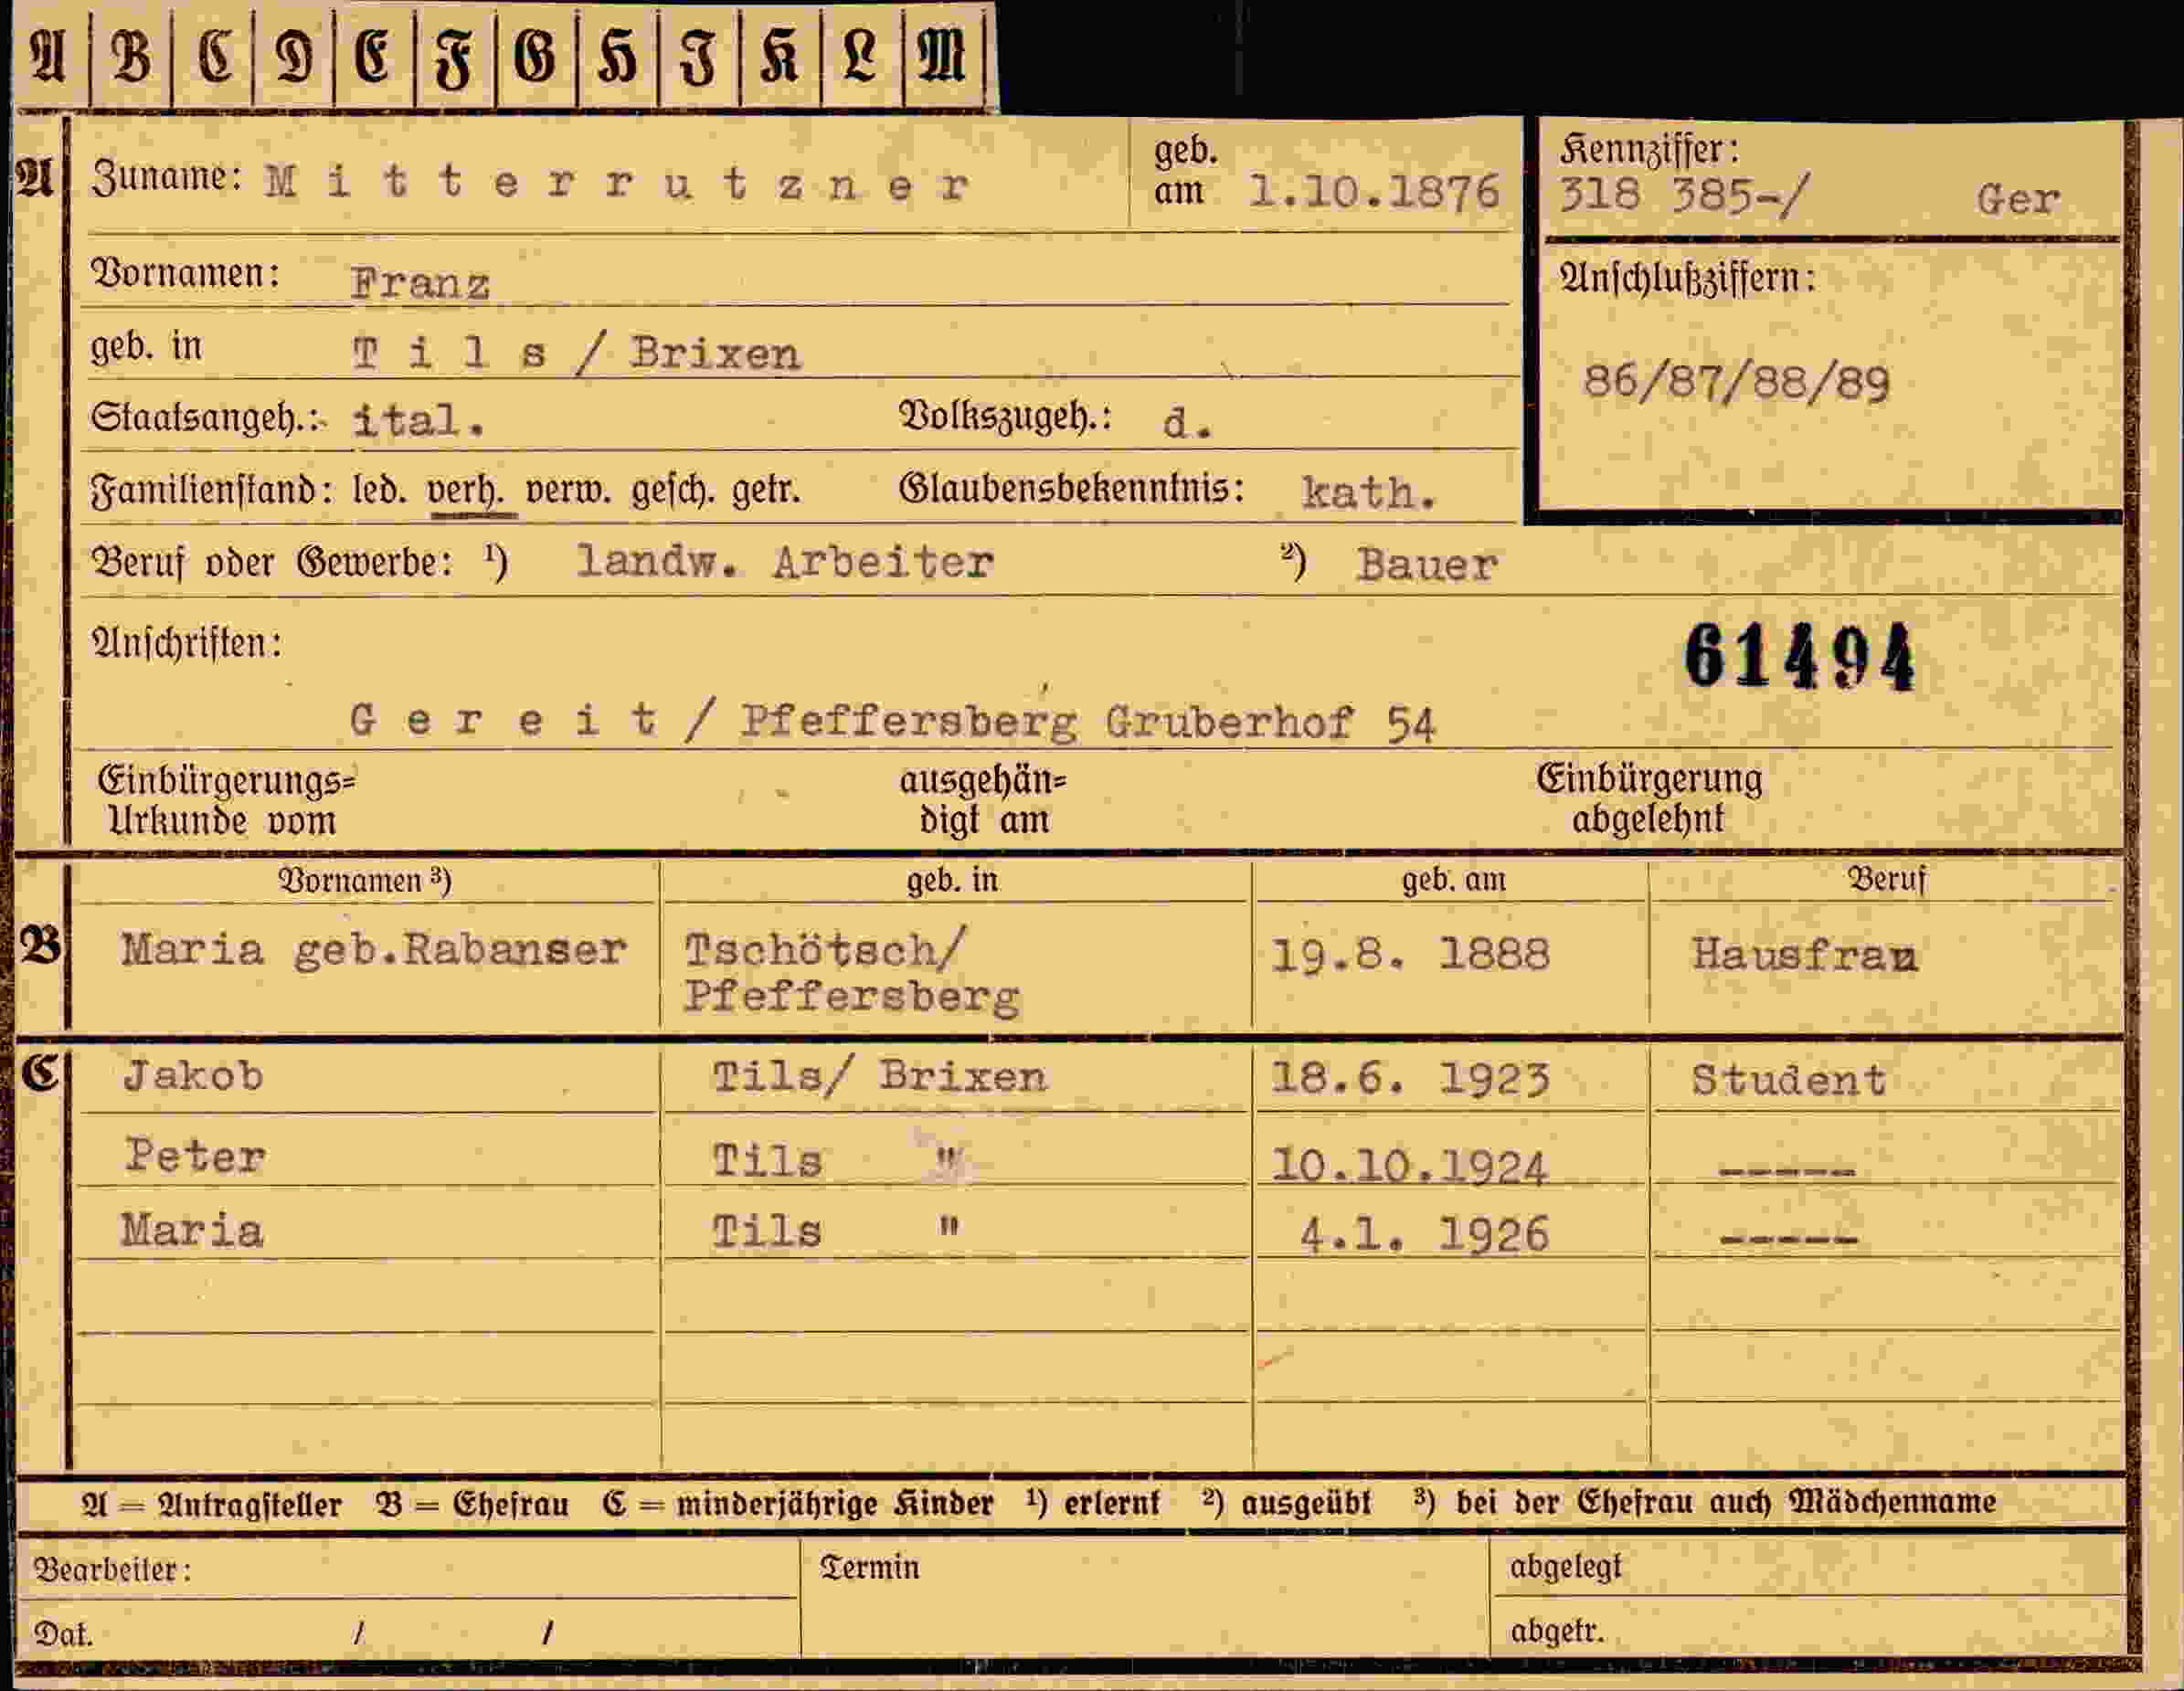 A B C D E F G H J K L M
A Zuname: Mitterrutzner geb. am 1.10.1876
Kennziffer:
318 385-/ Ger
Vornamen: Franz
Anschlußziffern:
geb. in Tils / Brixen
86/87/88/89
Staatsangeh.: ital. Volkszugeh.: d.
Familienstand: led. verh. verw. gesch. getr. Glaubensbekenntnis: kath.
Beruf oder Gewerbe: ¹) landw. Arbeiter ²) Bauer
Anschriften:
61494
Gereit / Pfeffersberg Gruberhof 54
Einbürgerungs= ausgehän= Einbürgerung
Urkunde vom digt am abgelehnt
Vornamen ³) geb. in geb. am Beruf
B Maria geb.Rabanser Tschötsch/ 19.8. 1888 Hausfrau
Pfeffersberg
C Jakob Tils/ Brixen 18.6. 1923 Student
Peter Tils " 10.10.1924 -----
Maria Tils " 4.1. 1926 -----
A = Antragsteller B = Ehefrau C = minderjährige Kinder ¹) erlernt ²) ausgeübt ³) bei der Ehefrau auch Mädchenname
Bearbeiter: Termin abgelegt
Dat. / / abgetr.